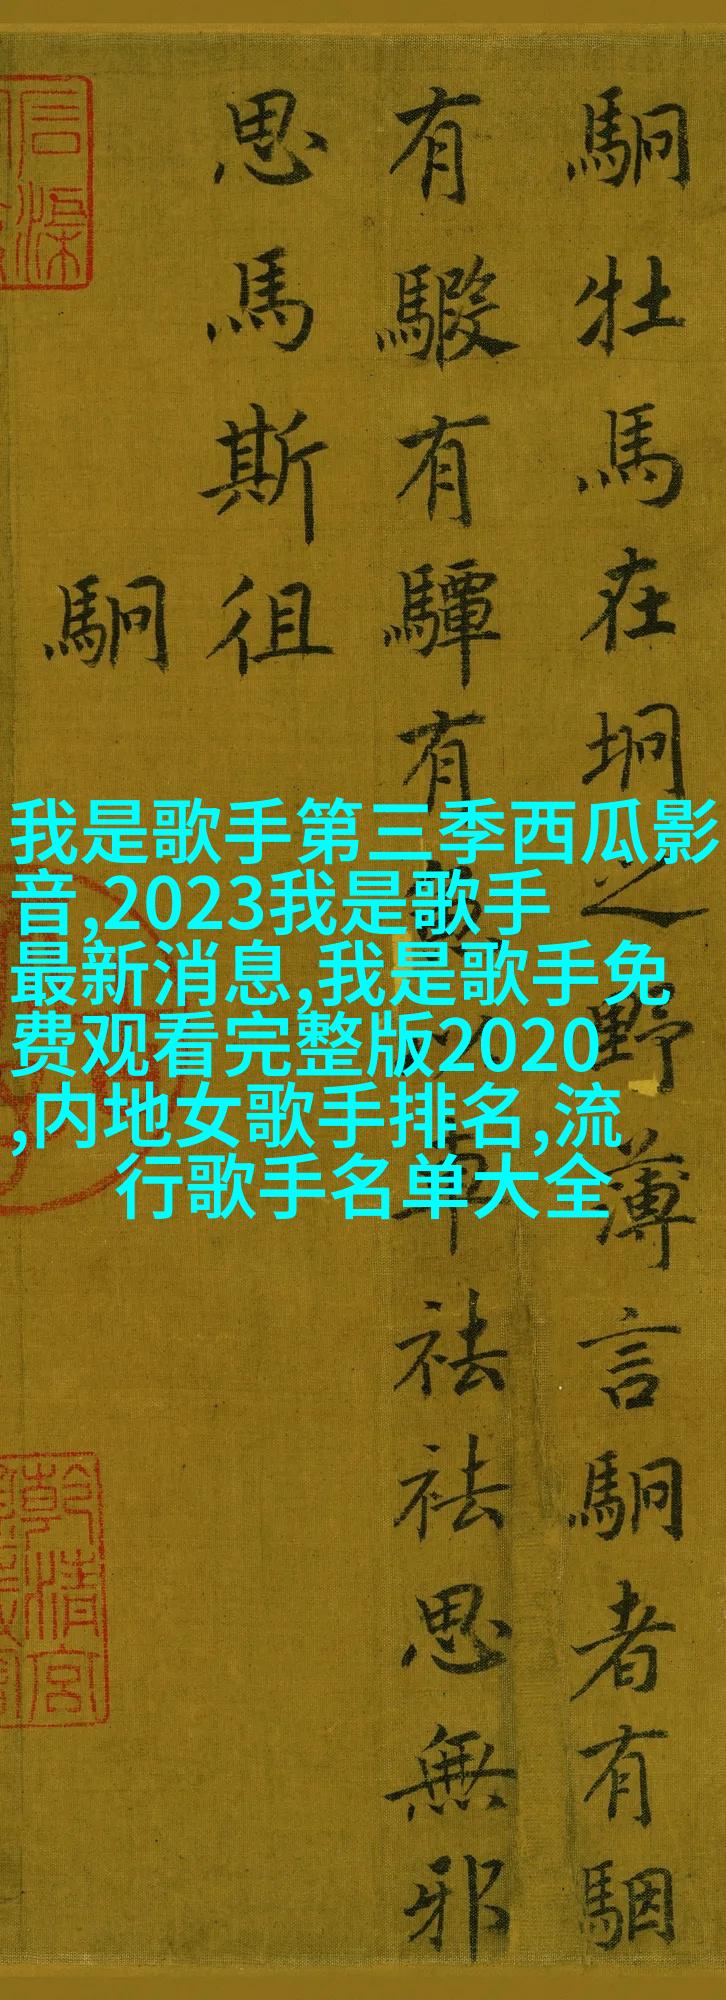 駉牡馬在坰之野薄言駉者有駰
有騢有驔有魚以車祛祛思無邪
思馬斯徂
駉
我是歌手第三季西瓜影
音,2023我是歌手
最新消息,我是歌手免
费观看完整版2020
,内地女歌手排名,流
行歌手名单大全
乾清宮